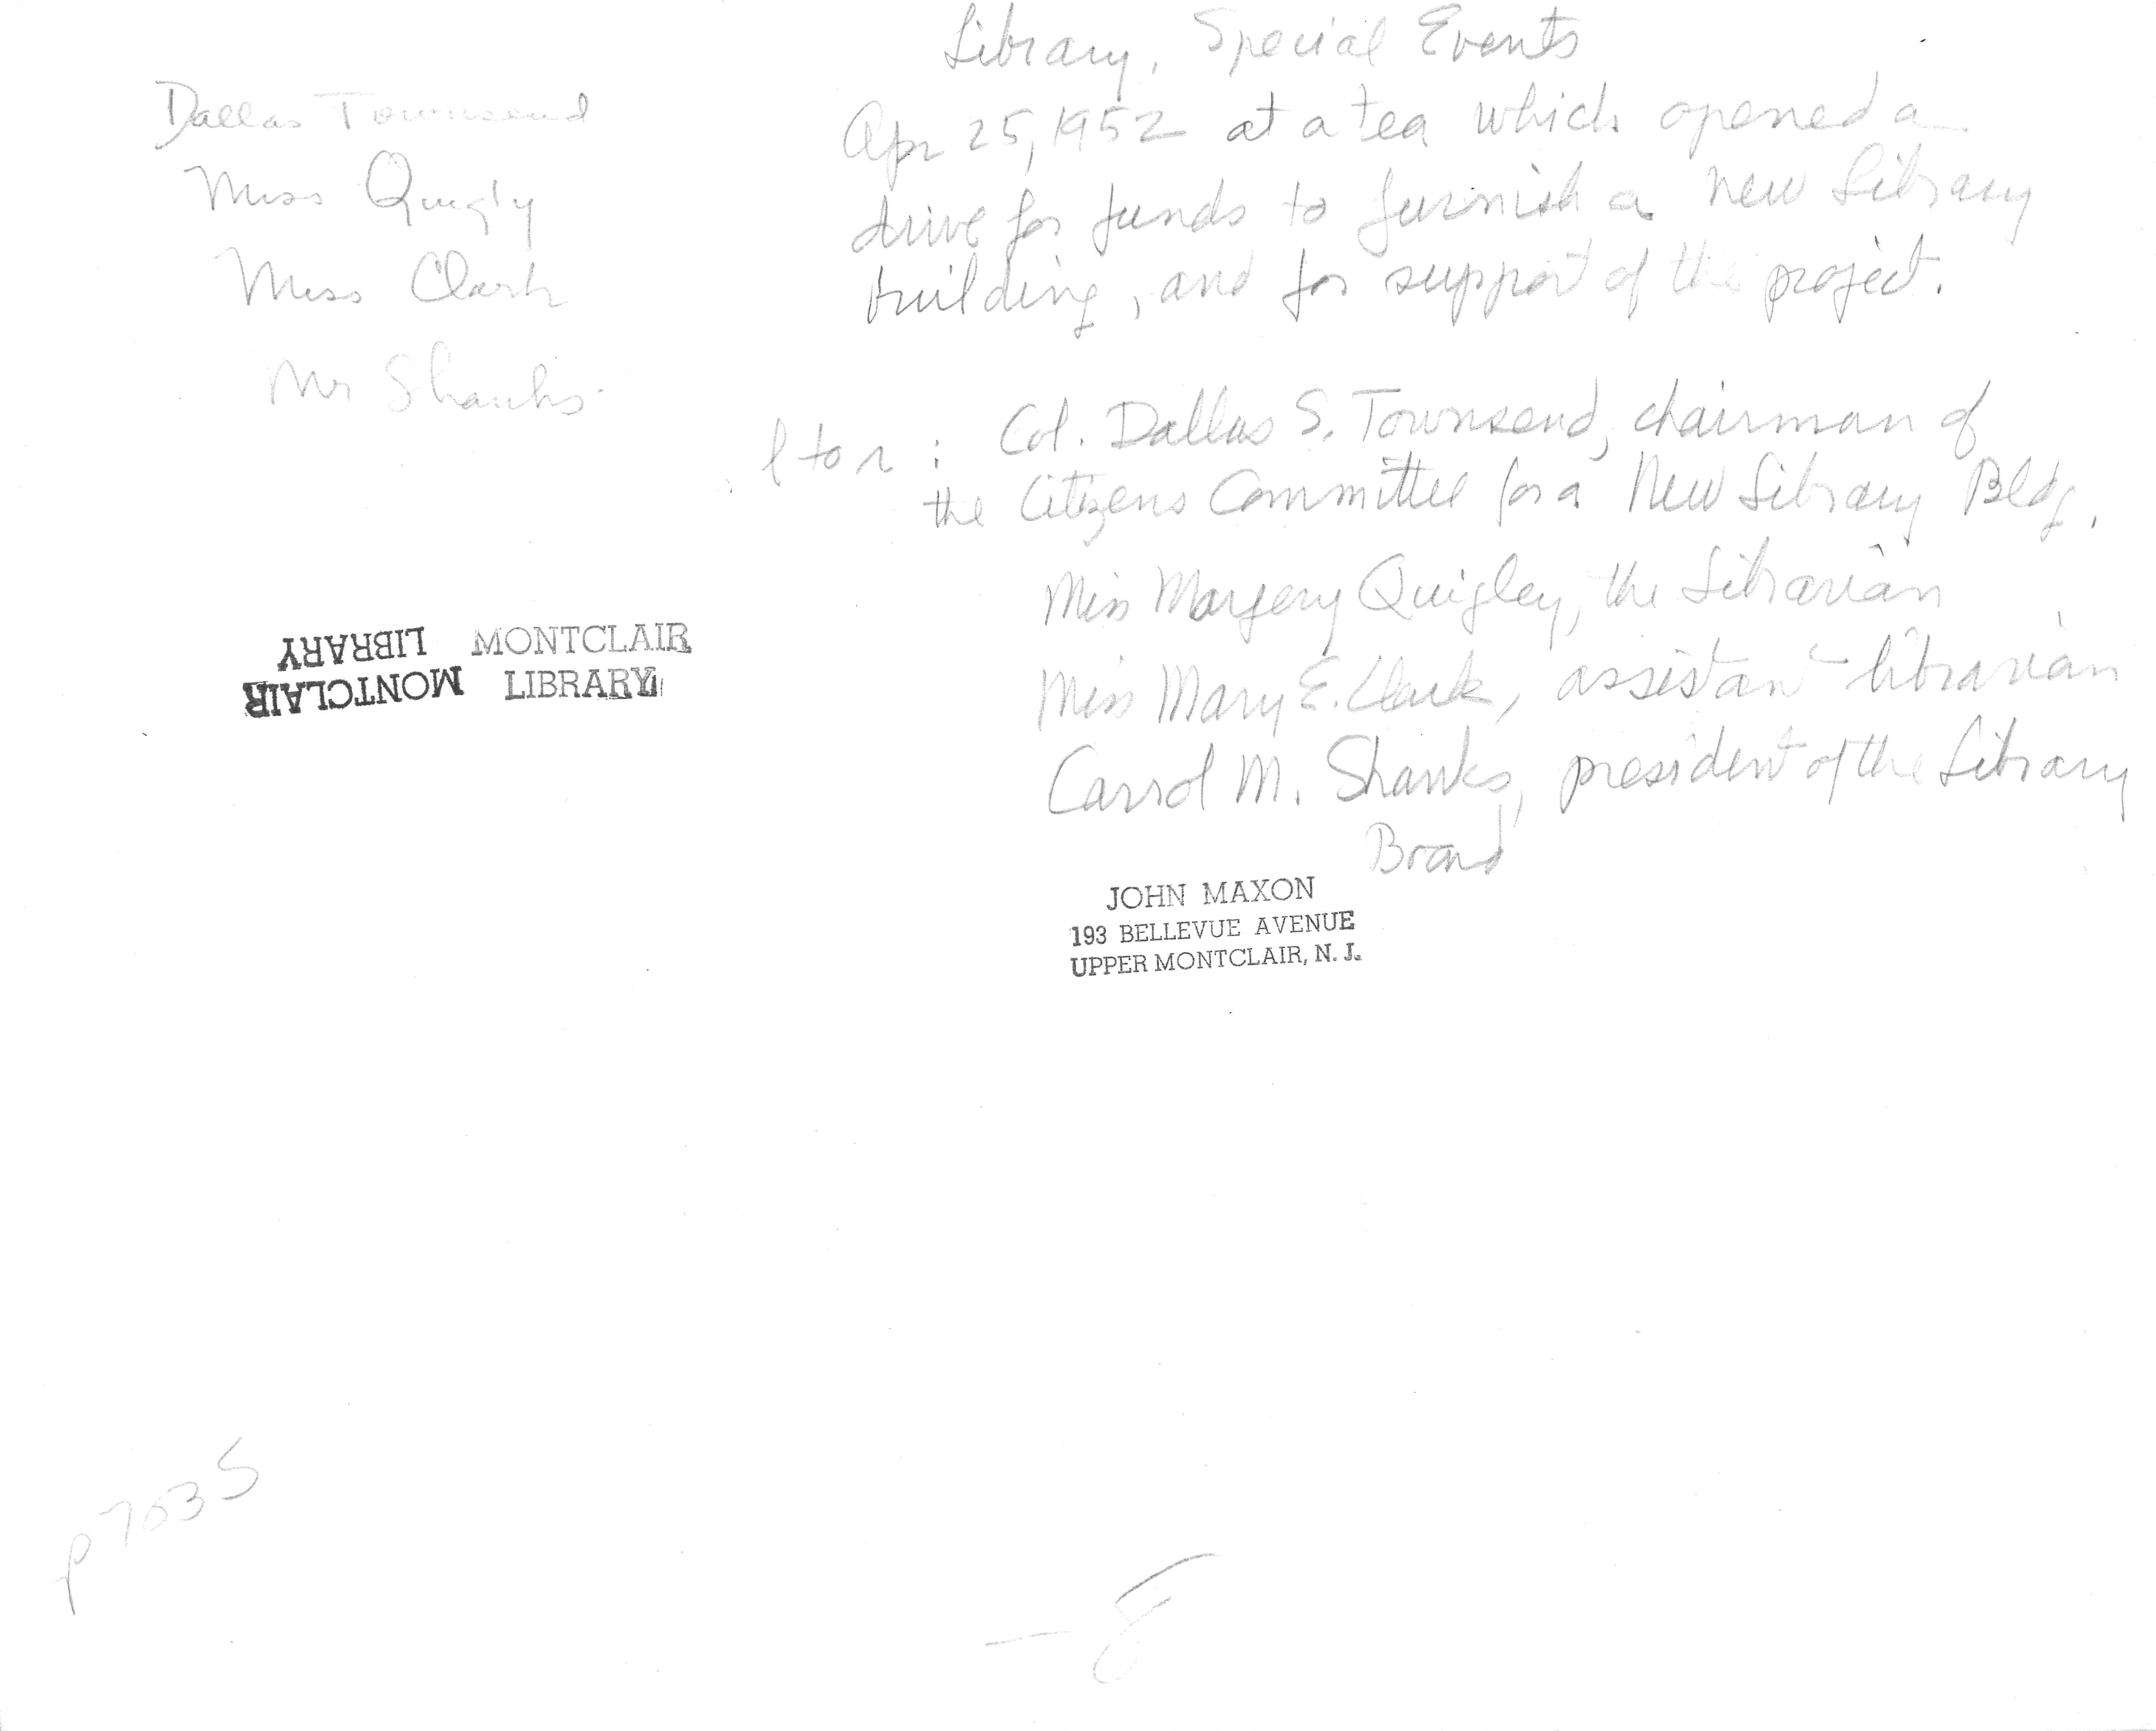 Library, Special Events
Dallas Townsend
Miss Quigly
Miss Clark
Mr Shanks
Apr 25, 1952 at a tea which opened a
drive for funds to furnish a new Library
building, and for support of the project.
l to r : Col. Dallas S. Townsend, chairman of
the Citizens Committee for a New Library Bldg.
Miss Margery Quigley, the Librarian
Miss Mary E. Clark, assistant librarian
Carrol M. Shanks, president of the Library
Board
MONTCLAIR
LIBRARY
MONTCLAIR
LIBRARY
JOHN MAXON
193 BELLEVUE AVENUE
UPPER MONTCLAIR, N. J.
p7035